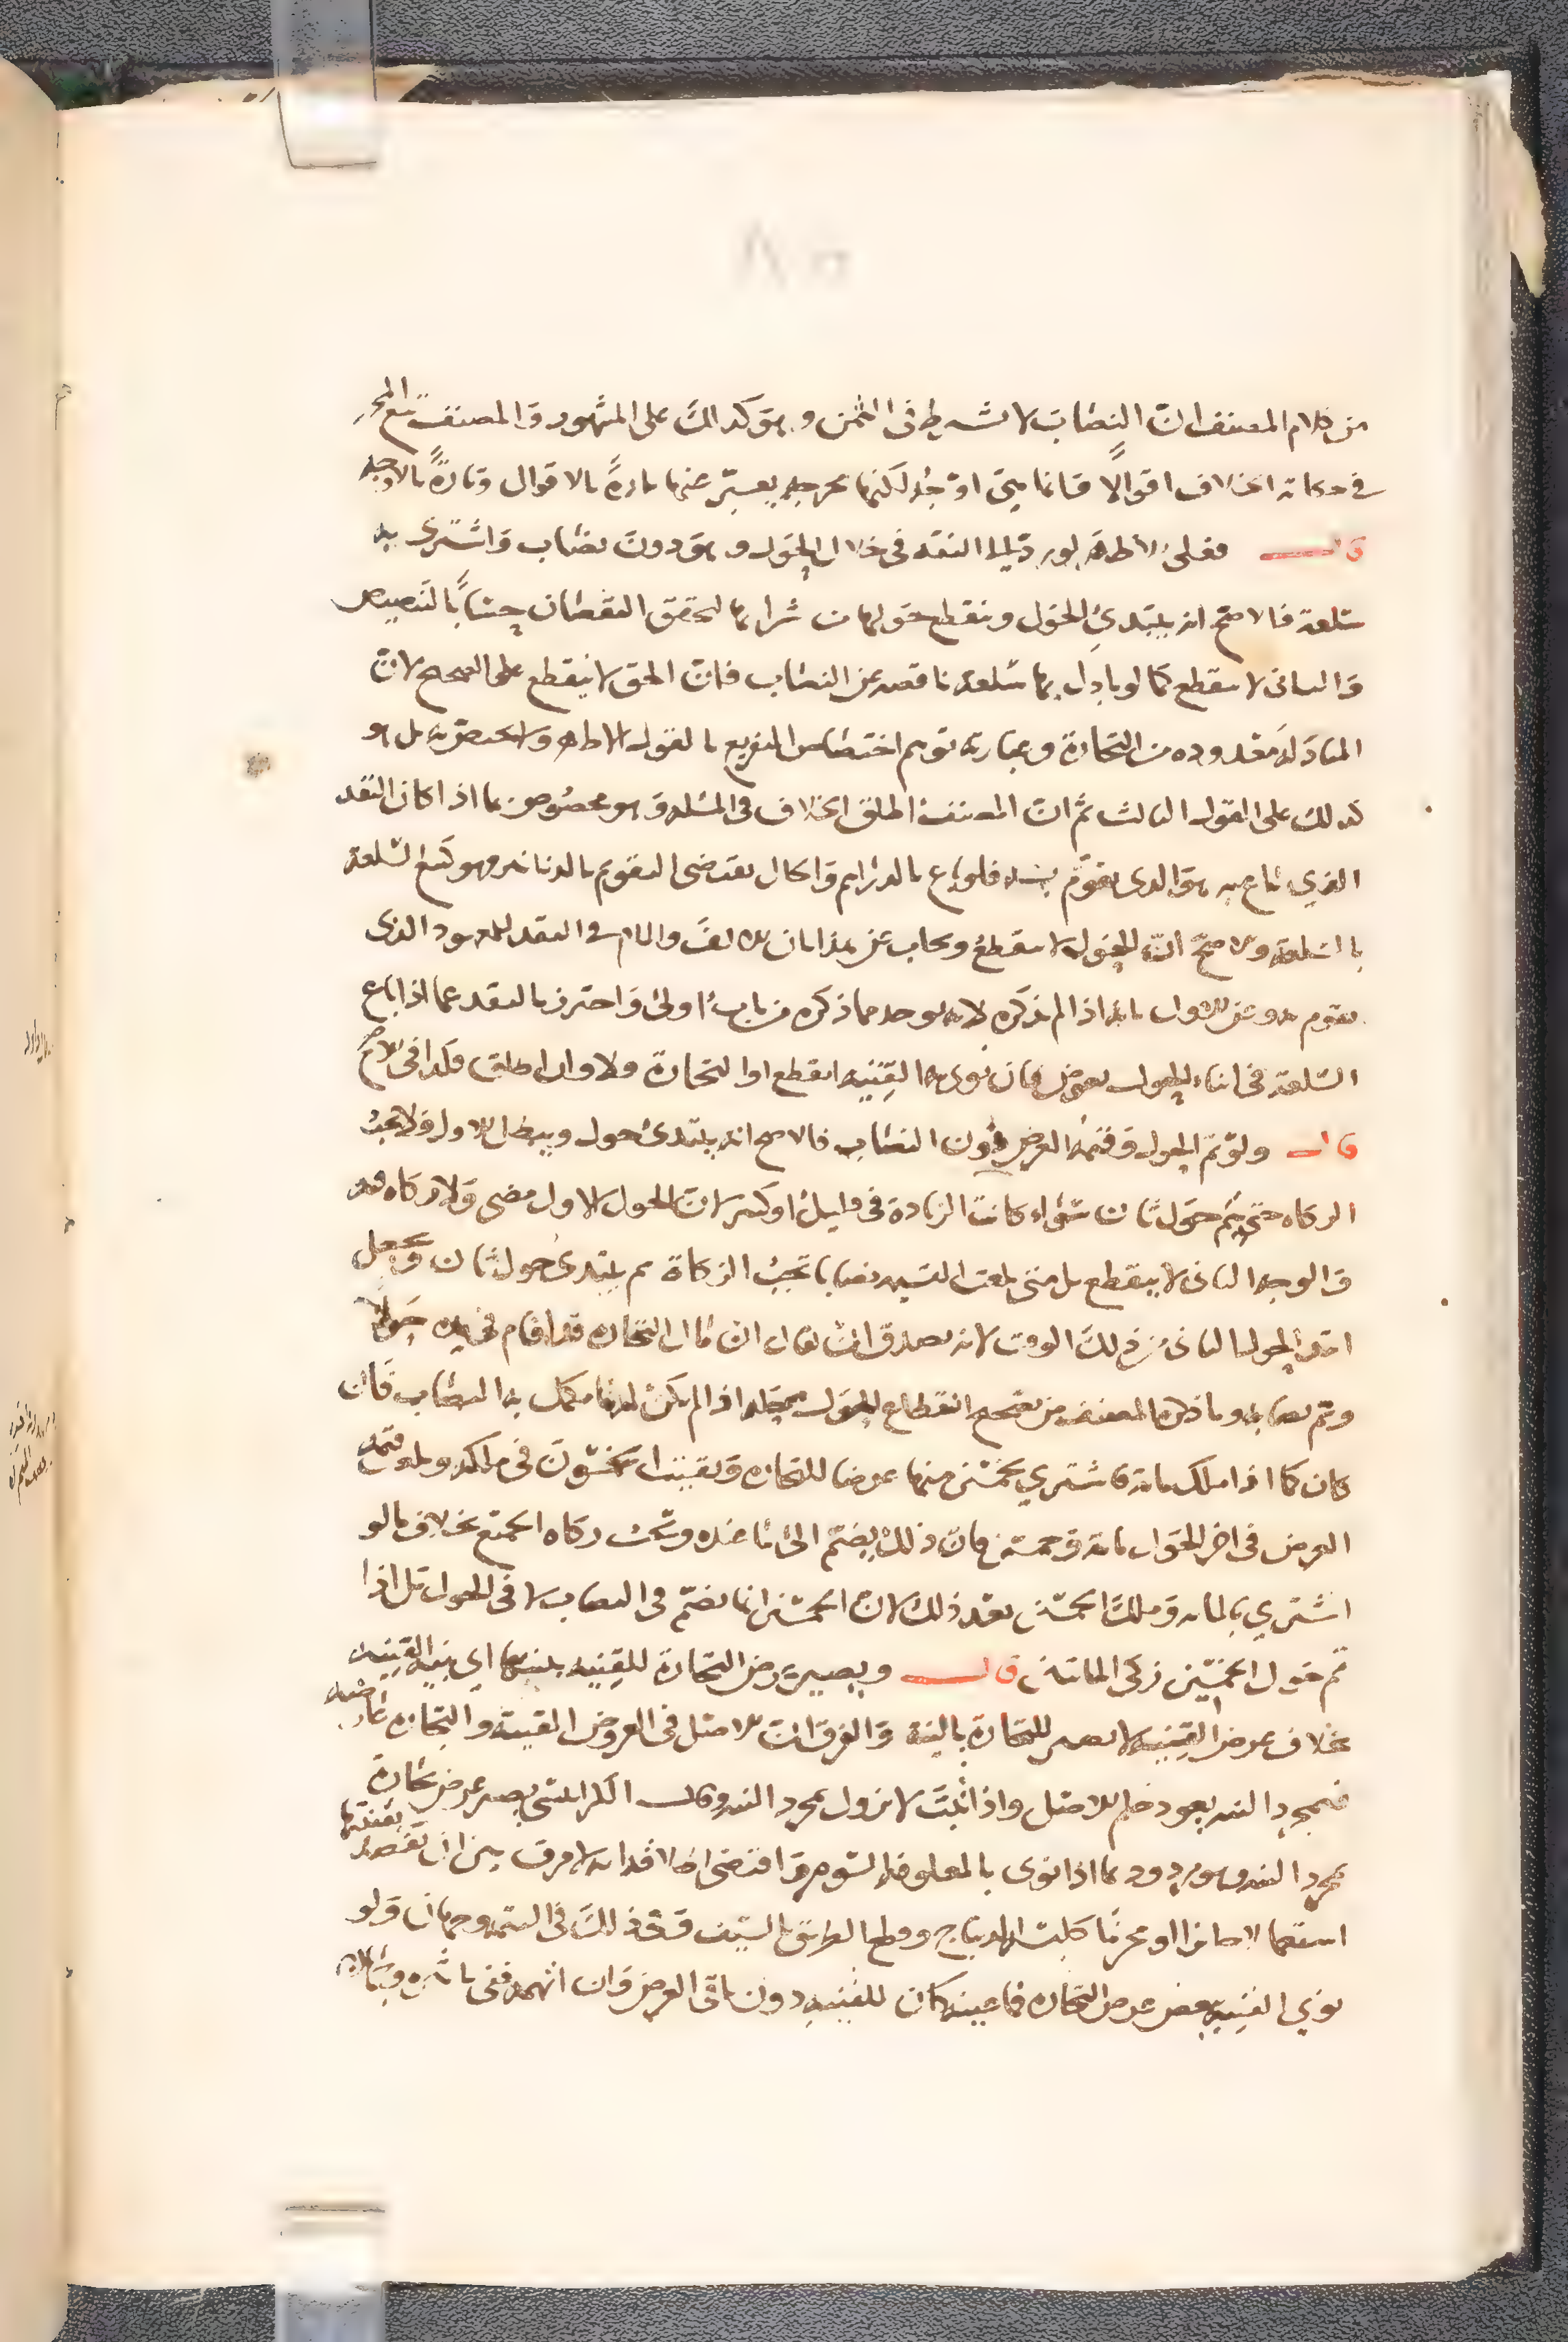 من كلام المصنف ان النصاب لا يشترط في الثمن وهو كذلك على المشهور والمصنف تبع المحرر
في حكايته الخلاف اقوالا فانما هي اوجه لكنها مخرجه يعبر عنها تارة بالاقوال وتارة بالاوجه
قال فعلى الاظهر لو رد الى النقد في خلال الحول وهو دون نصاب واشترى به
سلعة فالاصح انه يبتدئ الحول وينقطع حولها من شرائها لتحقق النقصان حسا بالتنصيص
والثاني لا ينقطع كما لو بادل بها سلعة ناقصه عن النصاب فان الحق لا ينقطع على الصحيح لان
المبادله معدوده من التجارة وعبارته توهم اختصاص التفريع بالقول الاظهر ولا يختص به بل هو
كذلك على القول الثالث ثم ان المصنف اطلق الخلاف في المسئله وهو مخصوص بما اذا كان النقد
الذي باع به هو الذي يقوم به فلو باع بالدراهم والحال يقتضي التقويم بالدنانير فهو كبيع السلعة
بالسلعة والاصح ان الحول لا ينقطع ويجاب عن هذا بان الالف واللام في النقد للمعهود الذي
يقوم به وعن الاول بانه اذا لم يذكره لانه يوخذ مما ذكره من باب اولى واحترز بالنقد عما اذا باع
السلعة في اثناء الحول بعرض فان نوى به القنيه انقطع او التجارة فلا وان اطلق فكذا في الاصح
قال ولو تم الحول وقيمة العرض دون النصاب فالاصح انه يبتدئ حول ويبطل الاول فلا تجب
الزكاه حتى يتم حول ثان سواء كانت الزيادة في قليل او كثير لان الحول الاول مضى ولا زكاه فيه
والوجه الثاني لا ينقطع بل متى بلغت القيمه نصابا تجب الزكاة ثم يبتدئ حول ثان ويجعل
ابتداء الحول الثاني من ذلك الوقت لانه يصدق ان يقال ان مال التجاره قد اقام في يده حولا
وتم نصابه وما ذكره المصنف من تصحيح انقطاع الحول محله اذا لم يكن له ما يكمل به النصاب فان
كان كما اذا ملك مايه فاشتري بخمسين منها عرضا للتجاره وبقيت الخمسون في ملكه وبلغ قيمة
العرض في اخر الحول مايه وخمسين فان ذلك يضم الى ما عنده وتجب زكاه الجميع بخلاف ما لو
اشتري بالمايه وملك الخمسين بعد ذلك لان الخمسين انما تضم في النصاب لا في الحول بل اذا
تم حول الخمسين زكى المائتين قال ويصير عرض التجارة للقنيه بنيتها اي بنية القنيه
بخلاف عرض القنيه لا يصير للتجارة بالنية والفرق ان الاصل في العروض القنية والتجاره عارضه
فبمجرد النيه يعود حكم الاصل واذا ثبت لا يزول بمجرد النيه وقال الكرابيسي يصير عرض تجارة
بمجرد النيه وهو مردود بما اذا نوى بالمعلوفه السوم واقتضى اطلاقه انه لا فرق بين ان يقصد بقنيتها
استعمالا جائزا او محرما كلبس الديباج وقطع الطريق بالسيف وفي ذلك في التتمه وجهان ولو
نوى القنيه ببعض عرض التجاره فما عينه كان للقنيه دون باقي العرض وان ابهمه ففي